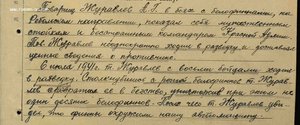 Товарищ Журавлев В.Г. в боях с белофиннами, на
Ребольском направлении, показал себя мужественным
стойким и бесстрашным командиром Красной Армии.
Тов. Журавлев неоднократно ходил в разведку и доставлял
ценные сведения о противнике.
6 июля 1941 г. т. Журавлев с восемью бойцами ходил
в разведку. Столкнувшись с ротой белофиннов т. Журав-
лев обратил ее в бегство, уничтожив при этом не
один десяток белофиннов. После чего т. Журавлев уви-
дел, что финны окружили нашу